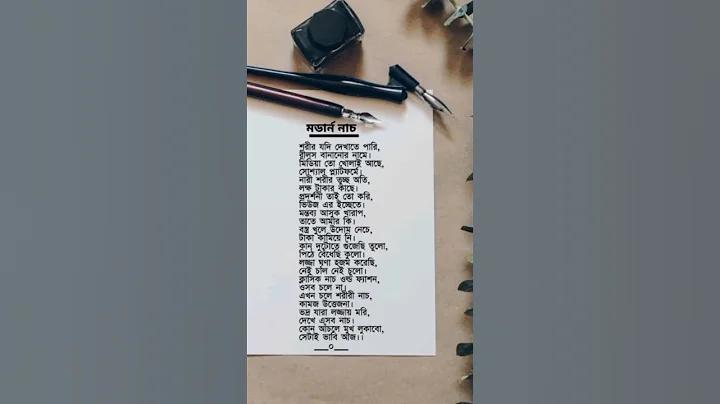 মডার্ন নাচ
শরীর যদি দেখাতে পারি,
রীলস বানানোর নামে।
মিডিয়া তো খোলাই আছে,
সোশ্যাল প্ল্যাটফর্মে।
নারী শরীর তুচ্ছ অতি,
লক্ষ টাকার কাছে।
প্রদর্শনী তাই তো করি,
ভিউজ এর ইচ্ছেতে।
মন্তব্য আসুক খারাপ,
তাতে আমার কি।
বস্ত্র খুলে উদোম নেচে,
টাকা কামিয়ে নি।
কান দুটোতে গুঁজেছি তুলো,
পিঠে বেঁধেছি কুলো।
লজ্জা ঘৃণা হজম করেছি,
নেই চাল নেই চুলো।
ক্লাসিক নাচ ওল্ড ফ্যাশন,
ওসব চলে না।
এখন চলে শরীরী নাচ,
কামজ উত্তেজনা।
ভদ্র যারা লজ্জায় মরি,
দেখে এসব নাচ।
কোন আঁচলে মুখ লুকাবো,
সেটাই ভাবি আজ।।
___০___